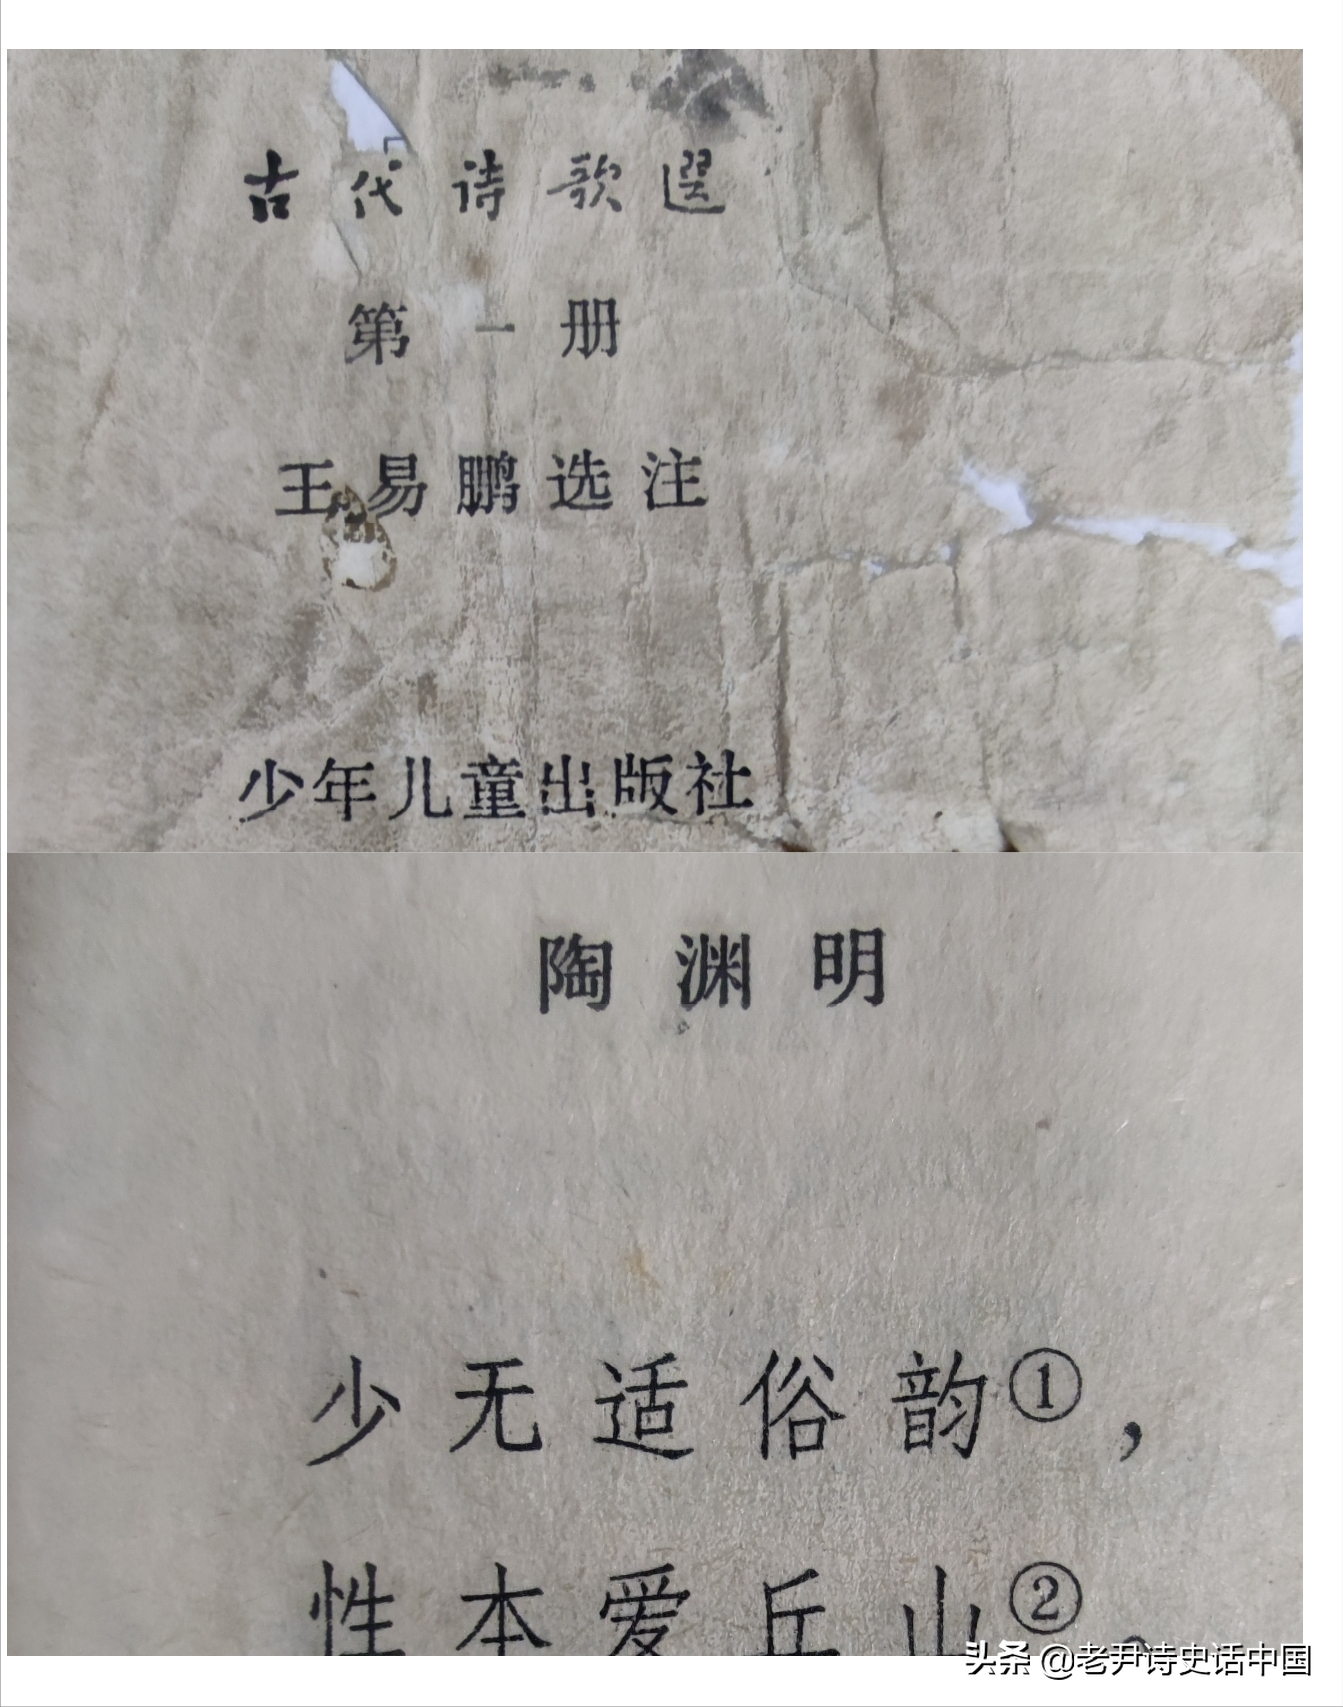 古代诗歌選
第一册
王易鹏选注
少年儿童出版社
陶渊明
少无适俗韵①，
性本爱丘山②。
头条 @老尹诗史话中国